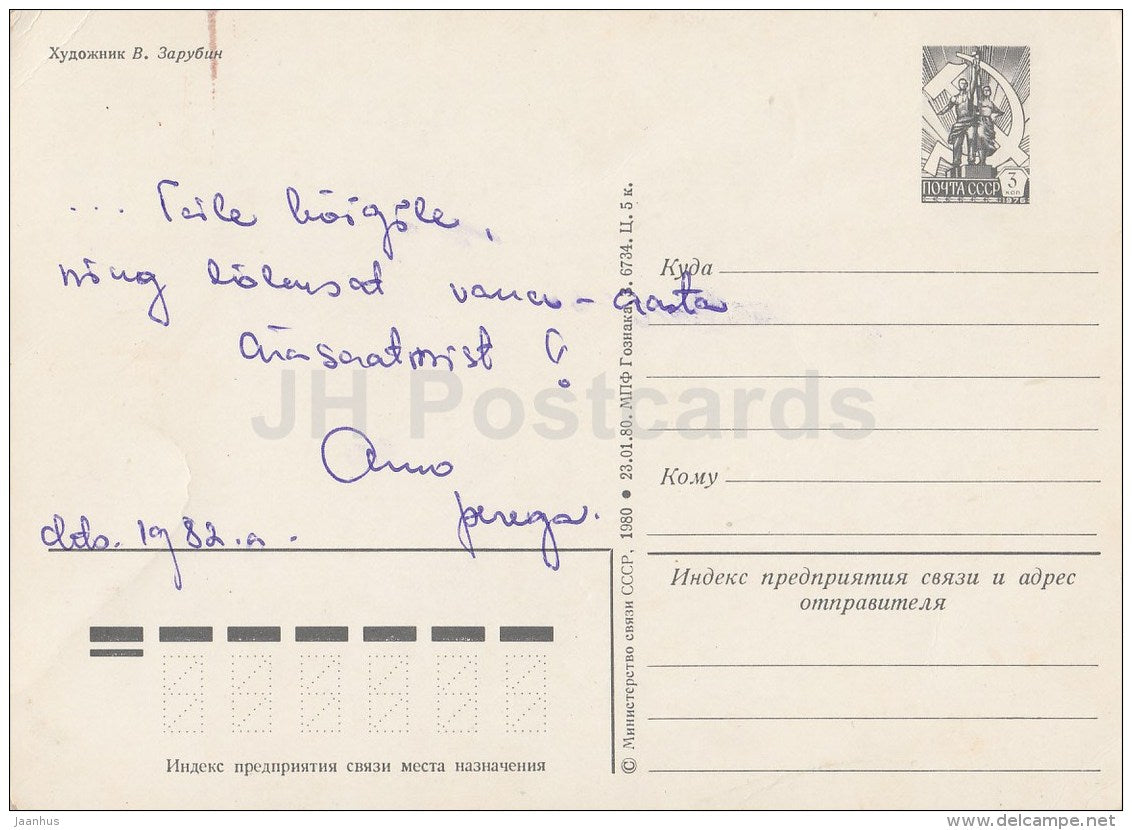 Художник В. Зарубин
ПОЧТА СССР 3 КОП
1976
... Teile kõigile,
ning lõbusat vana-aasta
ärasaatmist!
Arno
perega.
dets. 1982.a.
Куда
Кому
Индекс предприятия связи и адрес
отправителя
Индекс предприятия связи места назначения
© Министерство связи СССР, 1980 ● 23.01.80. МПФ Гознака. З. 6734. Ц. 5 к.
JH Postcards
Jaanhus
www.delcampe.net